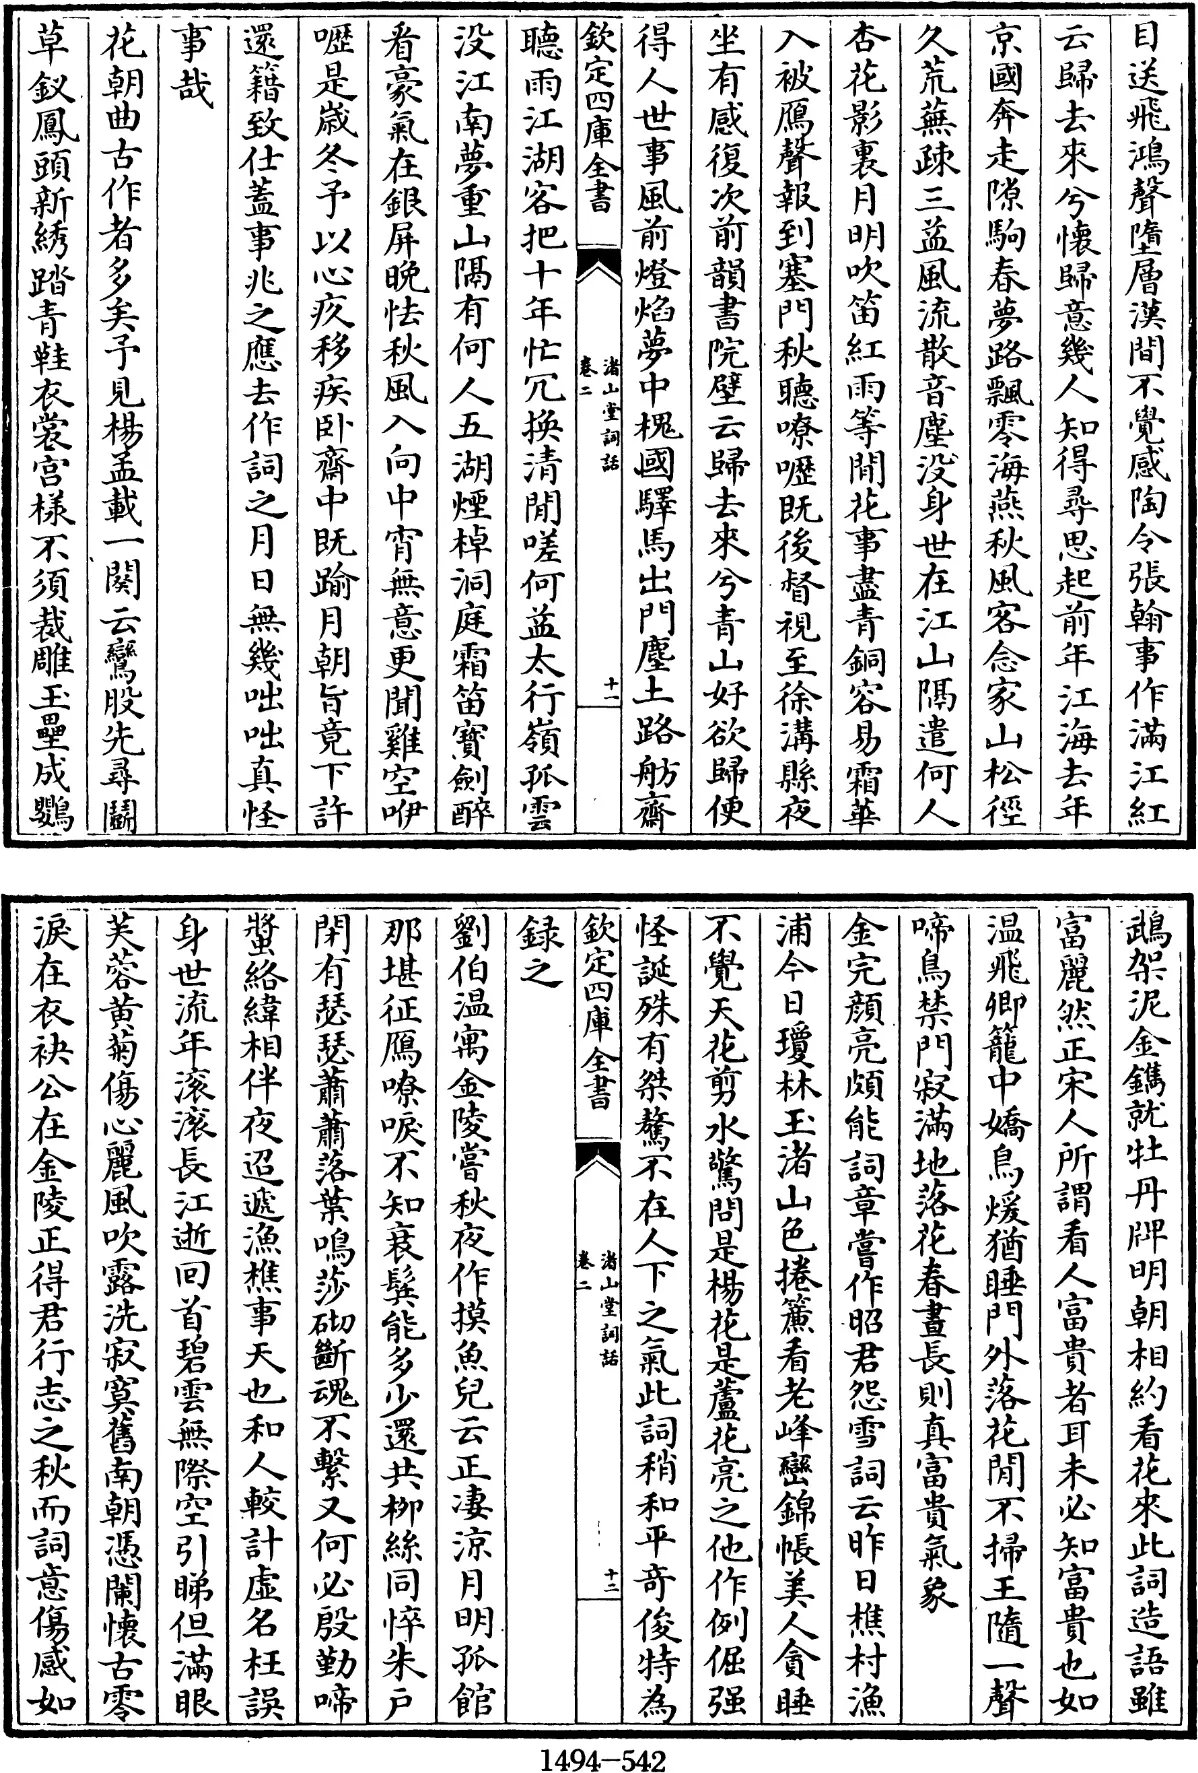 目送飛鴻聲墮層漢間不覺感陶令張翰事作滿江紅
云歸去來兮懷歸意幾人知得尋思起前年江海去年
京國奔走隙駒春夢路飄零海燕秋風客念家山松徑
久荒蕪疎三益風流散音塵沒身世在江山隔遣何人
杏花影裏月明吹笛紅雨等閒花事盡青銅容易霜華
入被鴈聲報到塞門秋聽嘹嚦既後督視至徐溝縣夜
坐有感復次前韻書院壁云歸去來兮青山好欲歸便
得人世事風前燈焰夢中槐國驛馬出門塵土路舫齋
欽定四庫全書
渚山堂詞話
卷二
十一
聽雨江湖客把十年忙冗換清閒嗟何益太行嶺孤雲
沒江南夢重山隔有何人五湖煙棹洞庭霜笛寶劍醉
看豪氣在銀屏晚怯秋風入向中宵無意更聞雞空咿
嚦是嵗冬予以心疚移疾卧齋中既踰月朝旨竟下許
還籍致仕蓋事兆之應去作詞之月日無幾咄咄真怪
事哉
花朝曲古作者多矣予見楊孟載一闋云鸞股先尋鬬
草釵鳳頭新綉踏青鞋衣裳宫樣不須裁雕玉壘成鸚
鵡架泥金鐫就牡丹牌明朝相約看花來此詞造語雖
富麗然正宋人所謂看人富貴者耳未必知富貴也如
温飛卿籠中嬌鳥煖猶睡門外落花閒不掃王隨一聲
啼鳥禁門寂滿地落花春晝長則真富貴氣象
金完顔亮頗能詞章嘗作昭君怨雪詞云昨日樵村漁
浦今日瓊林玉渚山色捲簾看老峰巒錦帳美人貪睡
不覺天花剪水驚問是楊花是蘆花亮之他作例倔强
怪誕殊有桀驁不在人下之氣此詞稍和平奇俊特為
欽定四庫全書
渚山堂詞話
卷二
十二
録之
劉伯温寓金陵嘗秋夜作摸魚兒云正凄涼月明孤館
那堪征鴈嘹唳不知衰鬂能多少還共柳絲同悴朱戶
閉有瑟瑟蕭蕭落葉鳴莎砌斷魂不繫又何必殷勤啼
螿絡緯相伴夜迢遞漁樵事天也和人較計虚名枉誤
身世流年滚滚長江逝回首碧雲無際空引睇但滿眼
芙蓉黄菊傷心麗風吹露洗寂寞舊南朝憑闌懷古零
淚在衣袂公在金陵正得君行志之秋而詞意傷感如
1494-542